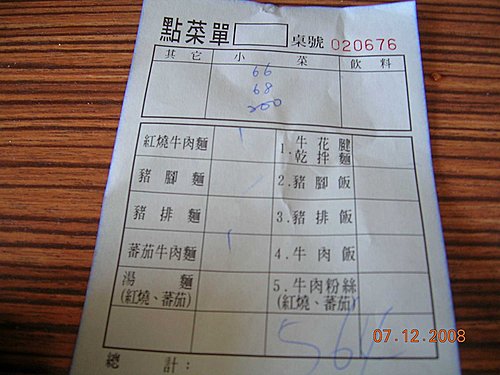 點菜單 桌號 020676
其它 小菜 飲料
66
68
200
紅燒牛肉麵 1 1.牛花腱乾拌麵
豬腳麵 2.豬腳飯
豬排麵 3.豬排飯
蕃茄牛肉麵 1 4.牛肉飯
湯麵 5.牛肉粉絲
(紅燒、蕃茄) (紅燒、蕃茄)
總計:
07.12.2008